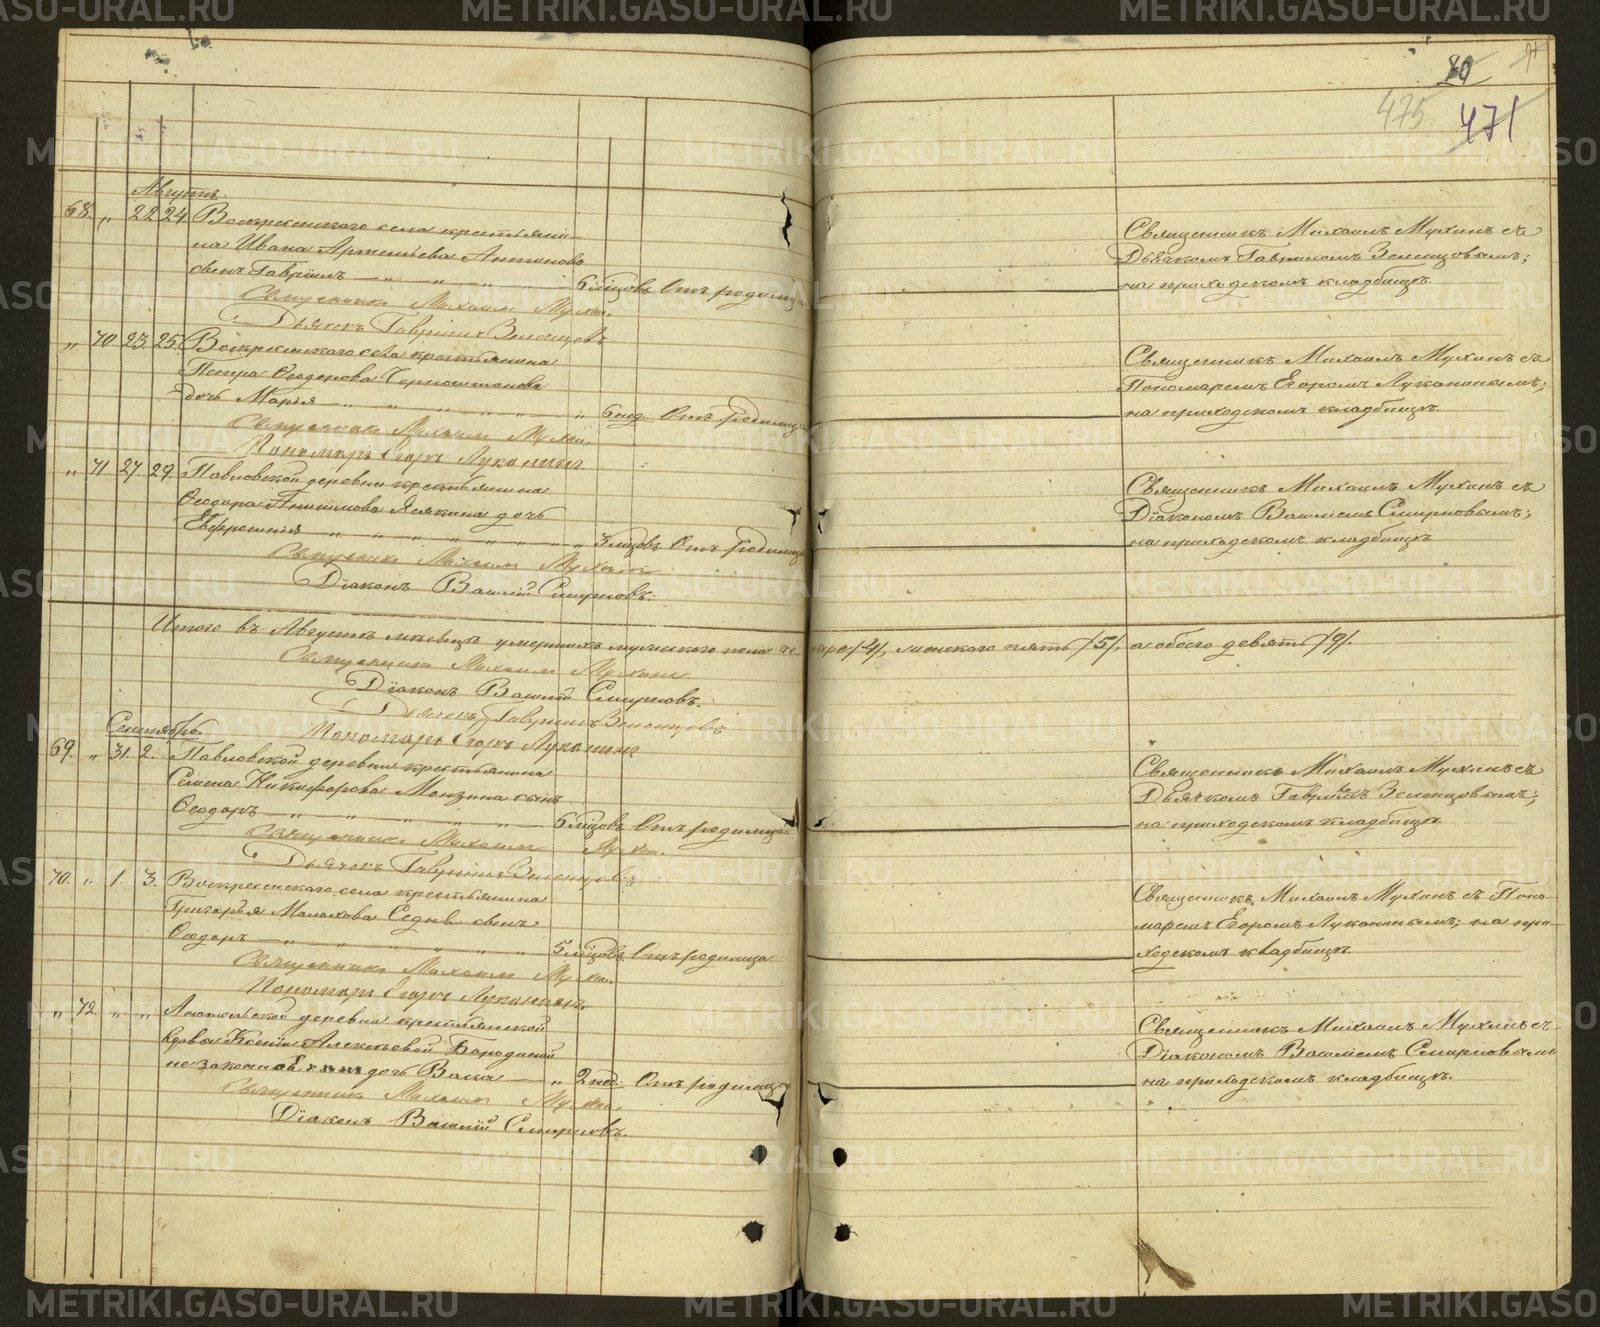 METRIKI.GASO-URAL.RU
80
475
471
Августъ.
68. „ 22 24. Воскресенскаго села крестьяни-
на Ивана Артемьева Антонова
сынъ Гаврiилъ — „ — „ — „ — 6 мѣцовъ. Отъ родимца
Священникъ Михаилъ Мухин.
Дьячекъ Гаврiилъ Зеленцовъ
Священникъ Михаилъ Мухинъ съ
Дьячкомъ Гаврiиломъ Зеленцовымъ;
на приходскомъ кладбищѣ.
„ 70 23. 25. Воскресенскаго села крестьянина
Петра Ѳеодорова
дочь Марiя — „ — „ — „ — 6 нед. Отъ родимца
Священникъ Михаилъ Мухин.
Пономарь Егоръ Луканинъ
Священникъ Михаилъ Мухинъ съ
Пономаремъ Егоромъ Луканинымъ;
на приходскомъ кладбищѣ.
„ 71. 27. 29. Павловской деревни крестьянина
Ѳеодора дочь
Евфросинiя — „ — „ — „ — 3 мѣцовъ Отъ родимца
Священникъ Михаилъ Мухинъ
Дiаконъ Василiй Смирновъ.
Священникъ Михаилъ Мухинъ съ
Дiакономъ Василiемъ Смирновымъ;
на приходскомъ кладбищѣ
Итого въ Августѣ мѣсяцѣ умершихъ мужескаго пола че-тыре /4/, женскаго пять /5/, а обоего девять /9/.
Священникъ Михаилъ Мухинъ
Дiаконъ Василiй Смирновъ.
Дьячекъ Гаврiилъ Зеленцовъ
Пономарь Егоръ Луканинъ
Сентябрь.
69. „ 31. 2. Павловской деревни крестьянина
Семена Никифорова Мокзина сынъ
Ѳеодоръ — „ — „ — „ — 6 мѣцовъ Отъ родимца
Священникъ Михаилъ Мухин.
Дьячекъ Гаврiилъ Зеленцовъ
Священникъ Михаилъ Мухинъ съ
Дьячкомъ Гаврiиломъ Зеленцовымъ;
на приходскомъ кладбищѣ.
70. „ 1. 3. Воскресенскаго села крестьянина
Григорья Малахова сынъ
Ѳеодоръ — „ — „ — „ — 5 мѣцовъ Отъ родимца
Священникъ Михаилъ Мухин.
Пономарь Егоръ Луканинъ.
Священникъ Михаилъ Мухинъ съ Поно-
маремъ Егоромъ Луканинымъ; на при-
ходскомъ кладбищѣ.
„ 72. „ „ деревни крестьянской
вдовы Ксенiи Алексѣевой Бородиной
незаконнорожденная дочь Васса — „ 2 нед. Отъ родимца
Священникъ Михаилъ Мухин.
Дiаконъ Василiй Смирновъ.
Священникъ Михаилъ Мухинъ съ
Дiакономъ Василiемъ Смирновымъ
на приходскомъ кладбищѣ.